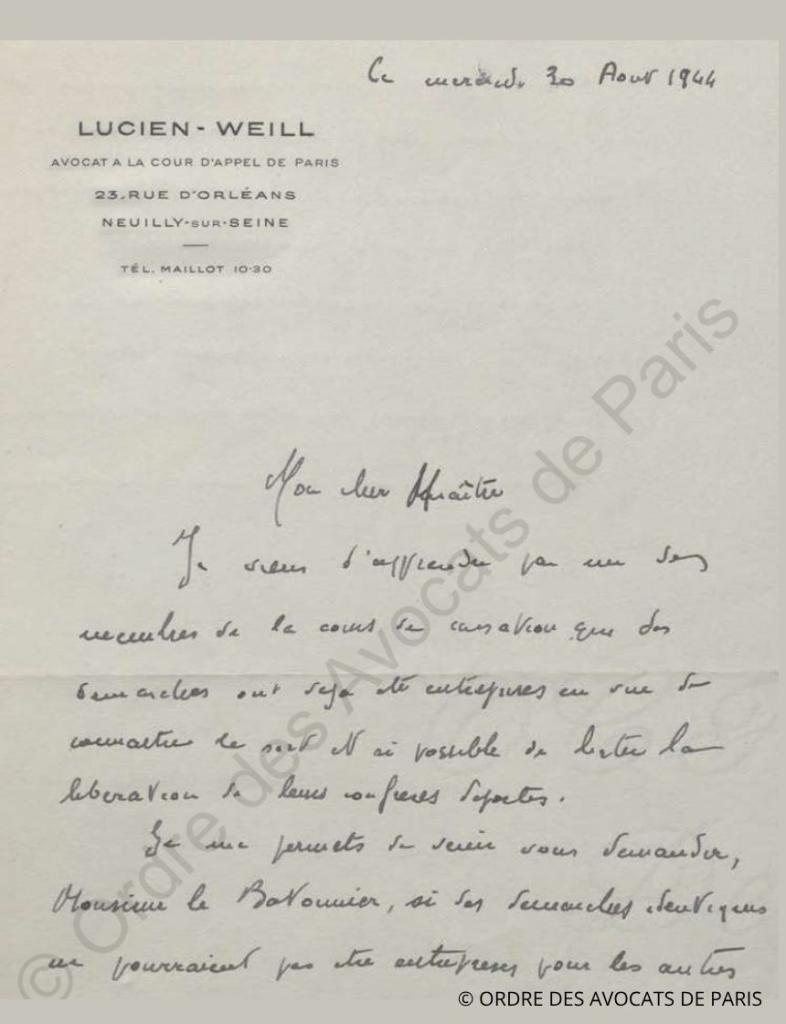 Ce mercredi 30 Aout 1944
LUCIEN - WEILL
AVOCAT A LA COUR D'APPEL DE PARIS
23, RUE D'ORLÉANS
NEUILLY-SUR-SEINE
TÉL. MAILLOT 10-30
Mon cher Maître
Je viens d'apprendre par un des
membres de la cour de cassation que des
demarches ont deja été entreprises en vue de
connaitre le sort et si possible de hater la
liberation de leurs confreres deportes.
Je me permets de venir vous demander,
Monsieur le Batonnier, si des demarches identiques
ne pourraient pas etre entreprises pour les autres
© Ordre des Avocats de Paris
© ORDRE DES AVOCATS DE PARIS